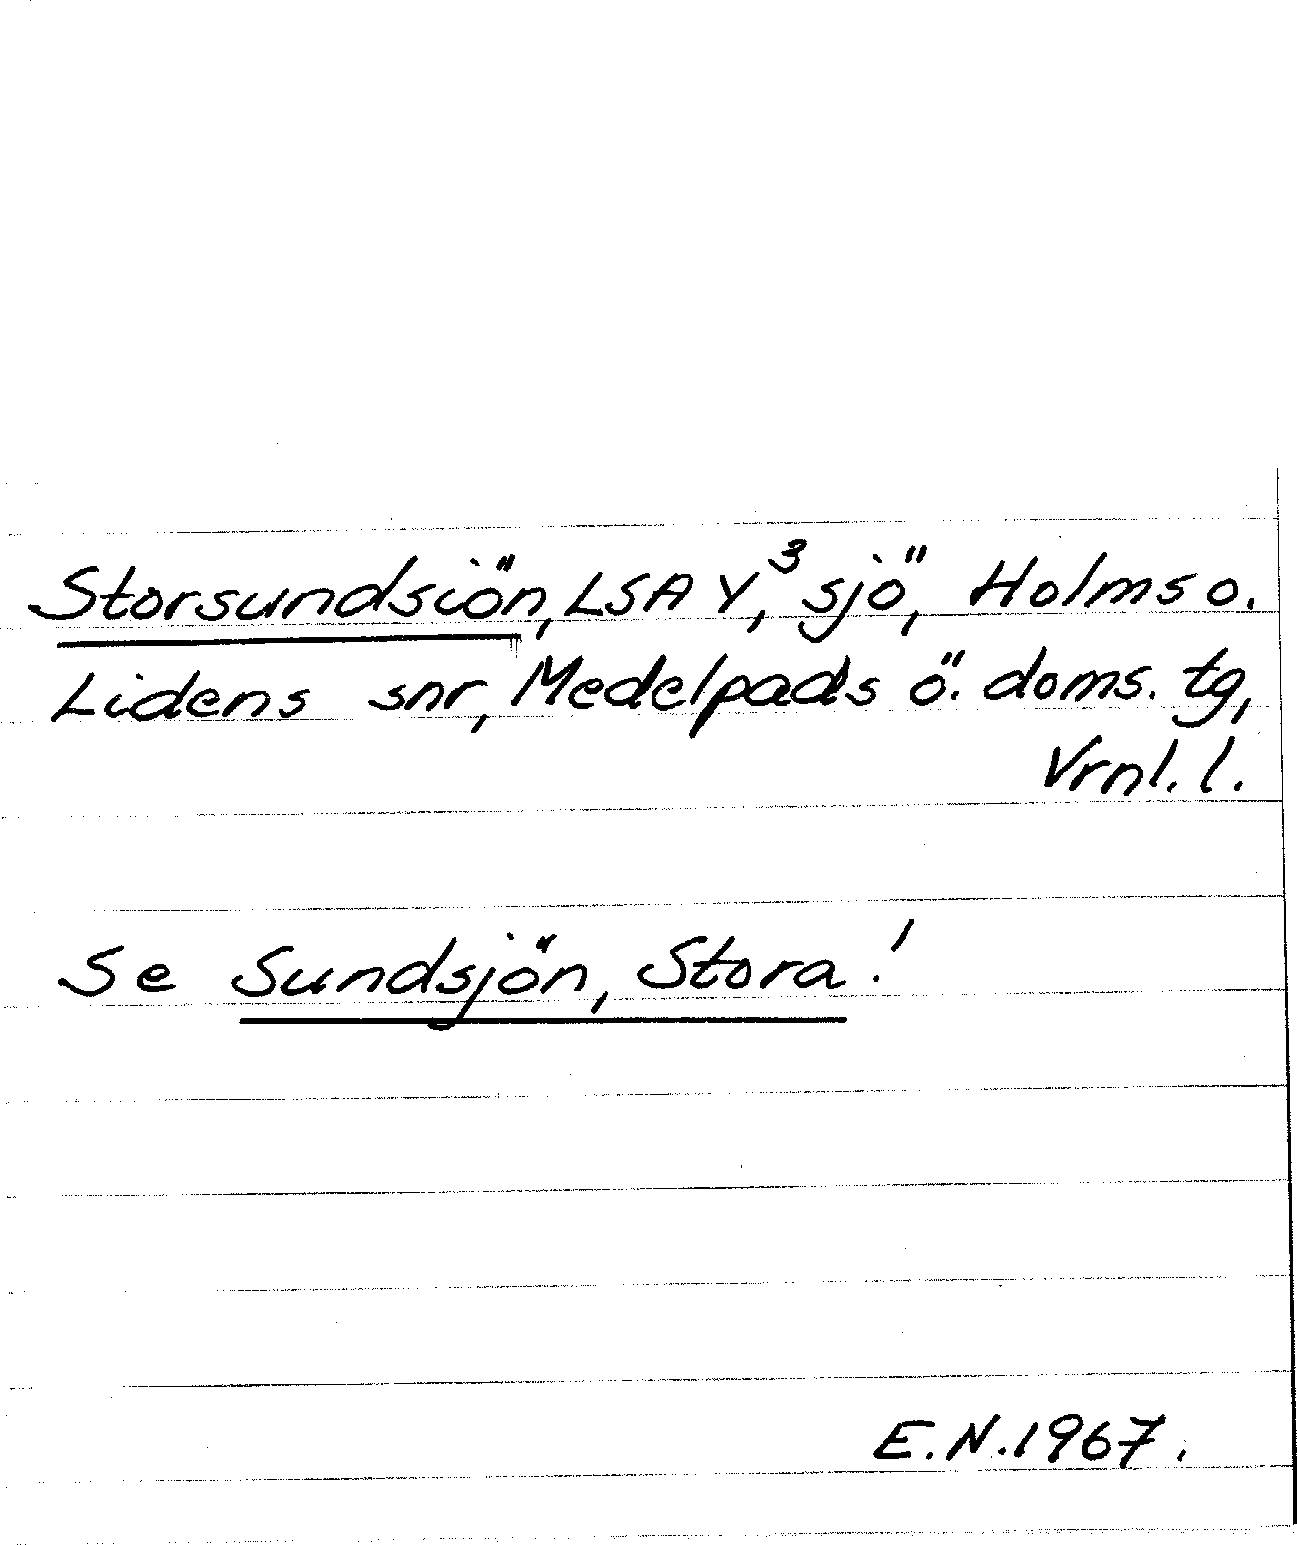 Storsundsjön, LSA Y,³ sjö, Holms o.
Lidens snr, Medelpads ö. doms. tg,
Vrnl. l.
Se Sundsjön, Stora!
E.N. 1967.